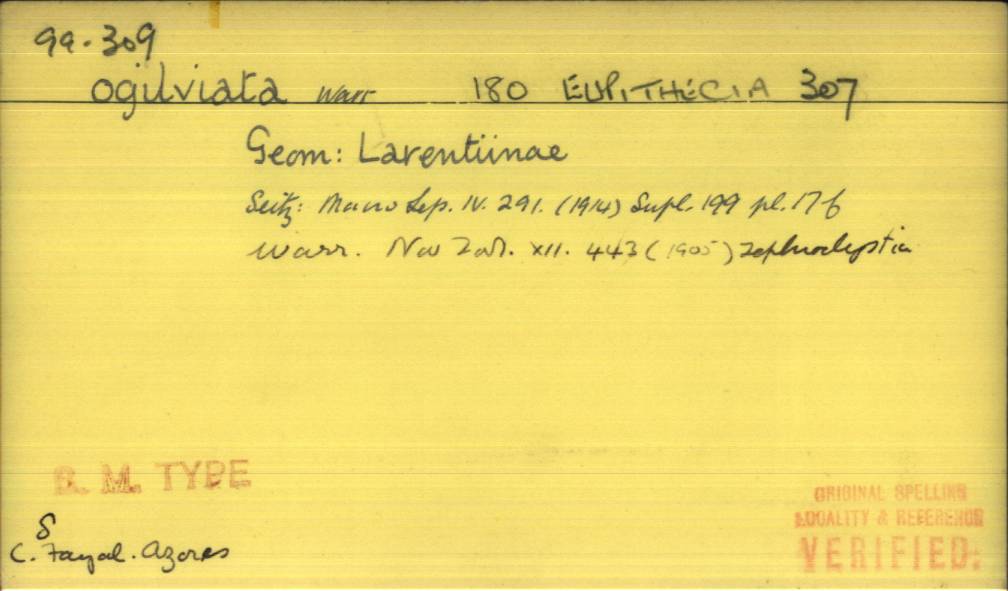 99.309
ogilviata Warr 180 EUPITHECIA 307
Geom: Larentiinae
Seitz: Macro Lep. IV. 291. (1914) Supl. 199 pl. 17 b
Warr. Nov Zool. XII. 443 (1905) Tephroclystia
B. M. TYPE
ORIGINAL SPELLING
LOCALITY & REFERENCE
VERIFIED.
C. Fayal. Azores